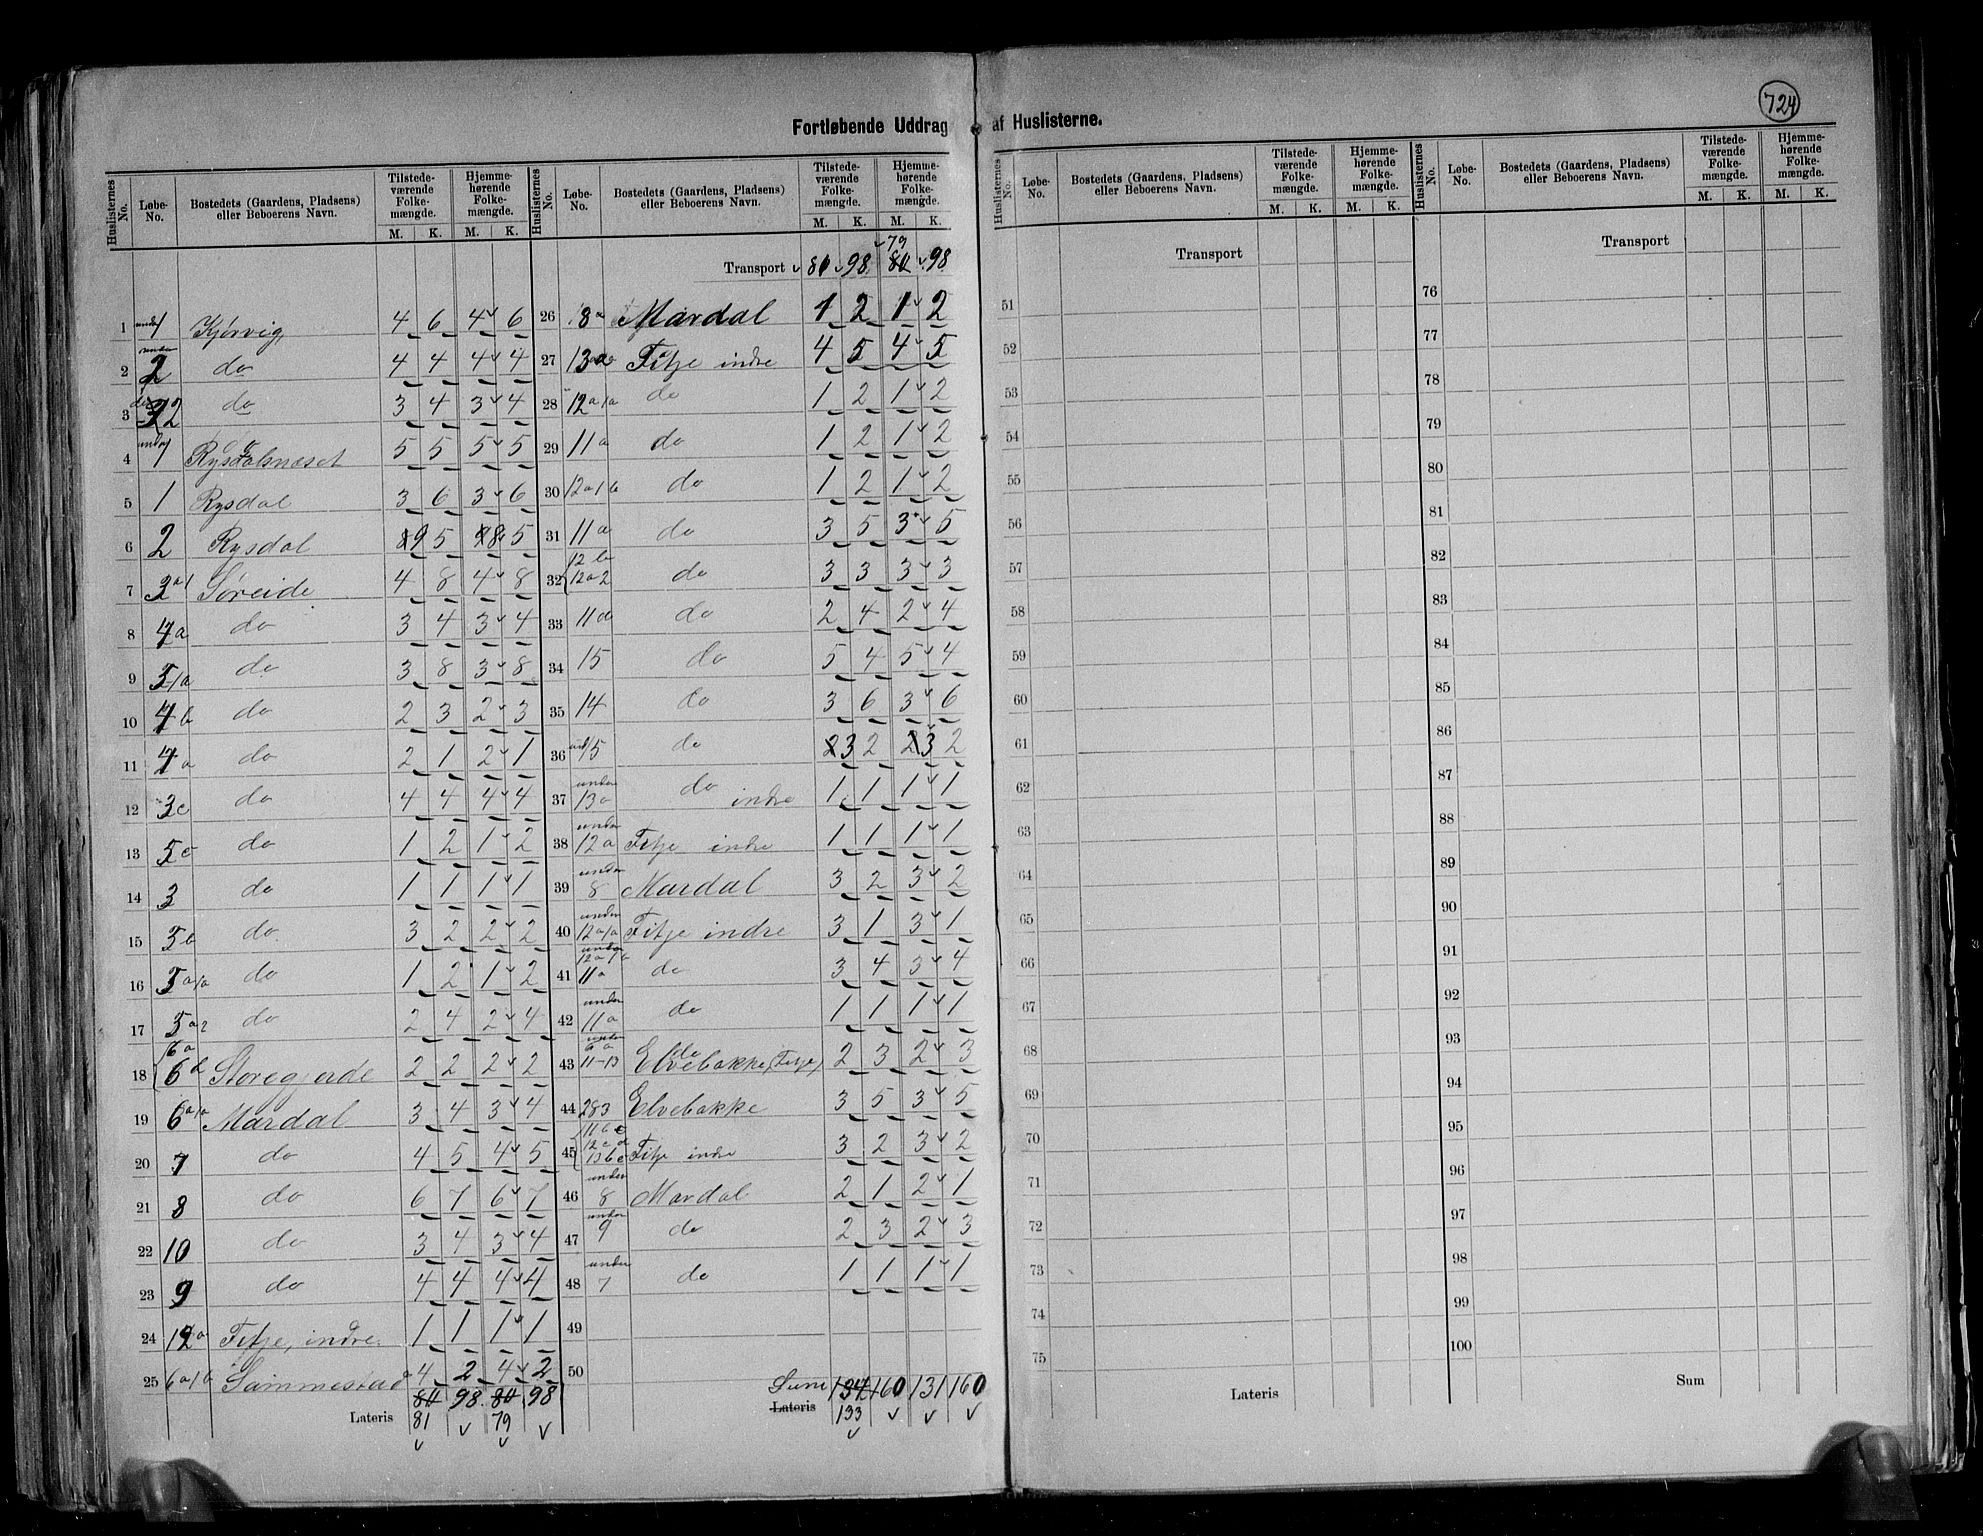 724
Fortløbende Uddrag af Huslisterne.
Huslisternes No. | Løbe-No. | Bostedets (Gaardens, Pladsens) eller Beboerens Navn. | Tilstedeværende Folkemængde. M. K. | Hjemmehørende Folkemængde. M. K.
1 under 1 Kjørvig, 4 6 4 6
2 under 2 do 4 4 4 4
3 do 3 4 3 4
4 under 1 Rysdalsnæset 5 5 5 5
5 1 Rysdal 3 6 3 6
6 2 Rysdal 9 5 8 5
7 3a1 Søreide 4 8 4 8
8 4a do 3 4 3 4
9 5/a do 3 8 3 8
10 4b do 2 3 2 3
11 4a do 2 1 2 1
12 3c do 4 4 4 4
13 5c do 1 2 1 2
14 3 do 1 1 1 1
15 5b do 3 2 2 2
16 5a1a do 1 2 1 2
17 5a2 do 2 4 2 4
18 6a 6d Storegjerde 2 2 2 2
19 6a1a Mardal 3 4 3 4
20 7 do 4 5 4 5
21 8 do 6 7 6 7
22 10 do 3 4 3 4
23 9 do 4 4 4 4
24 12a Fitje, indre. 1 1 1 1
25 6a1b Sammestad 4 2 4 2
80 98 80 98
Lateris 81 79
79
Transport 81 98 80 98
26 8a Mardal 1 2 1 2
27 13a Fitje indre 4 5 4 5
28 12a1a do 1 2 1 2
29 11a do 1 2 1 2
30 12a1b do 1 2 1 2
31 11a do 3 5 3 5
32 12b 12a2 do 3 3 3 3
33 11d do 2 4 2 4
34 15 do 5 4 5 4
35 14 do 3 6 3 6
36 und 15 do 2 3 2 2 3 2
37 under 13a do indre 1 1 1 1
38 under 12a Fitje indre 1 1 1 1
39 under 8 Mardal 3 2 3 2
40 under 12a1a Fitje indre 3 1 3 1
41 under 12a1b 11a do 3 4 3 4
42 under 11a do 1 1 1 1
43 under 6a 11-13 do Elvebakke, (Fitje) 2 3 2 3
44 283 Elvebakke 3 5 3 5
45 11bc 12cd 13bc Fitje indre 3 2 3 2
46 under 8 Mardal 2 1 2 1
47 under 9 do 2 3 2 3
48 under 7 do 1 1 1 1
49
50
Sum 134 160 131 160
Lateris 133
Huslisternes No. | Løbe-No. | Bostedets (Gaardens, Pladsens) eller Beboerens Navn. | Tilstedeværende Folkemængde. M. K. | Hjemmehørende Folkemængde. M. K.
Transport
51
52
53
54
55
56
57
58
59
60
61
62
63
64
65
66
67
68
69
70
71
72
73
74
75
Lateris
Transport
76
77
78
79
80
81
82
83
84
85
86
87
88
89
90
91
92
93
94
95
96
97
98
99
100
Sum